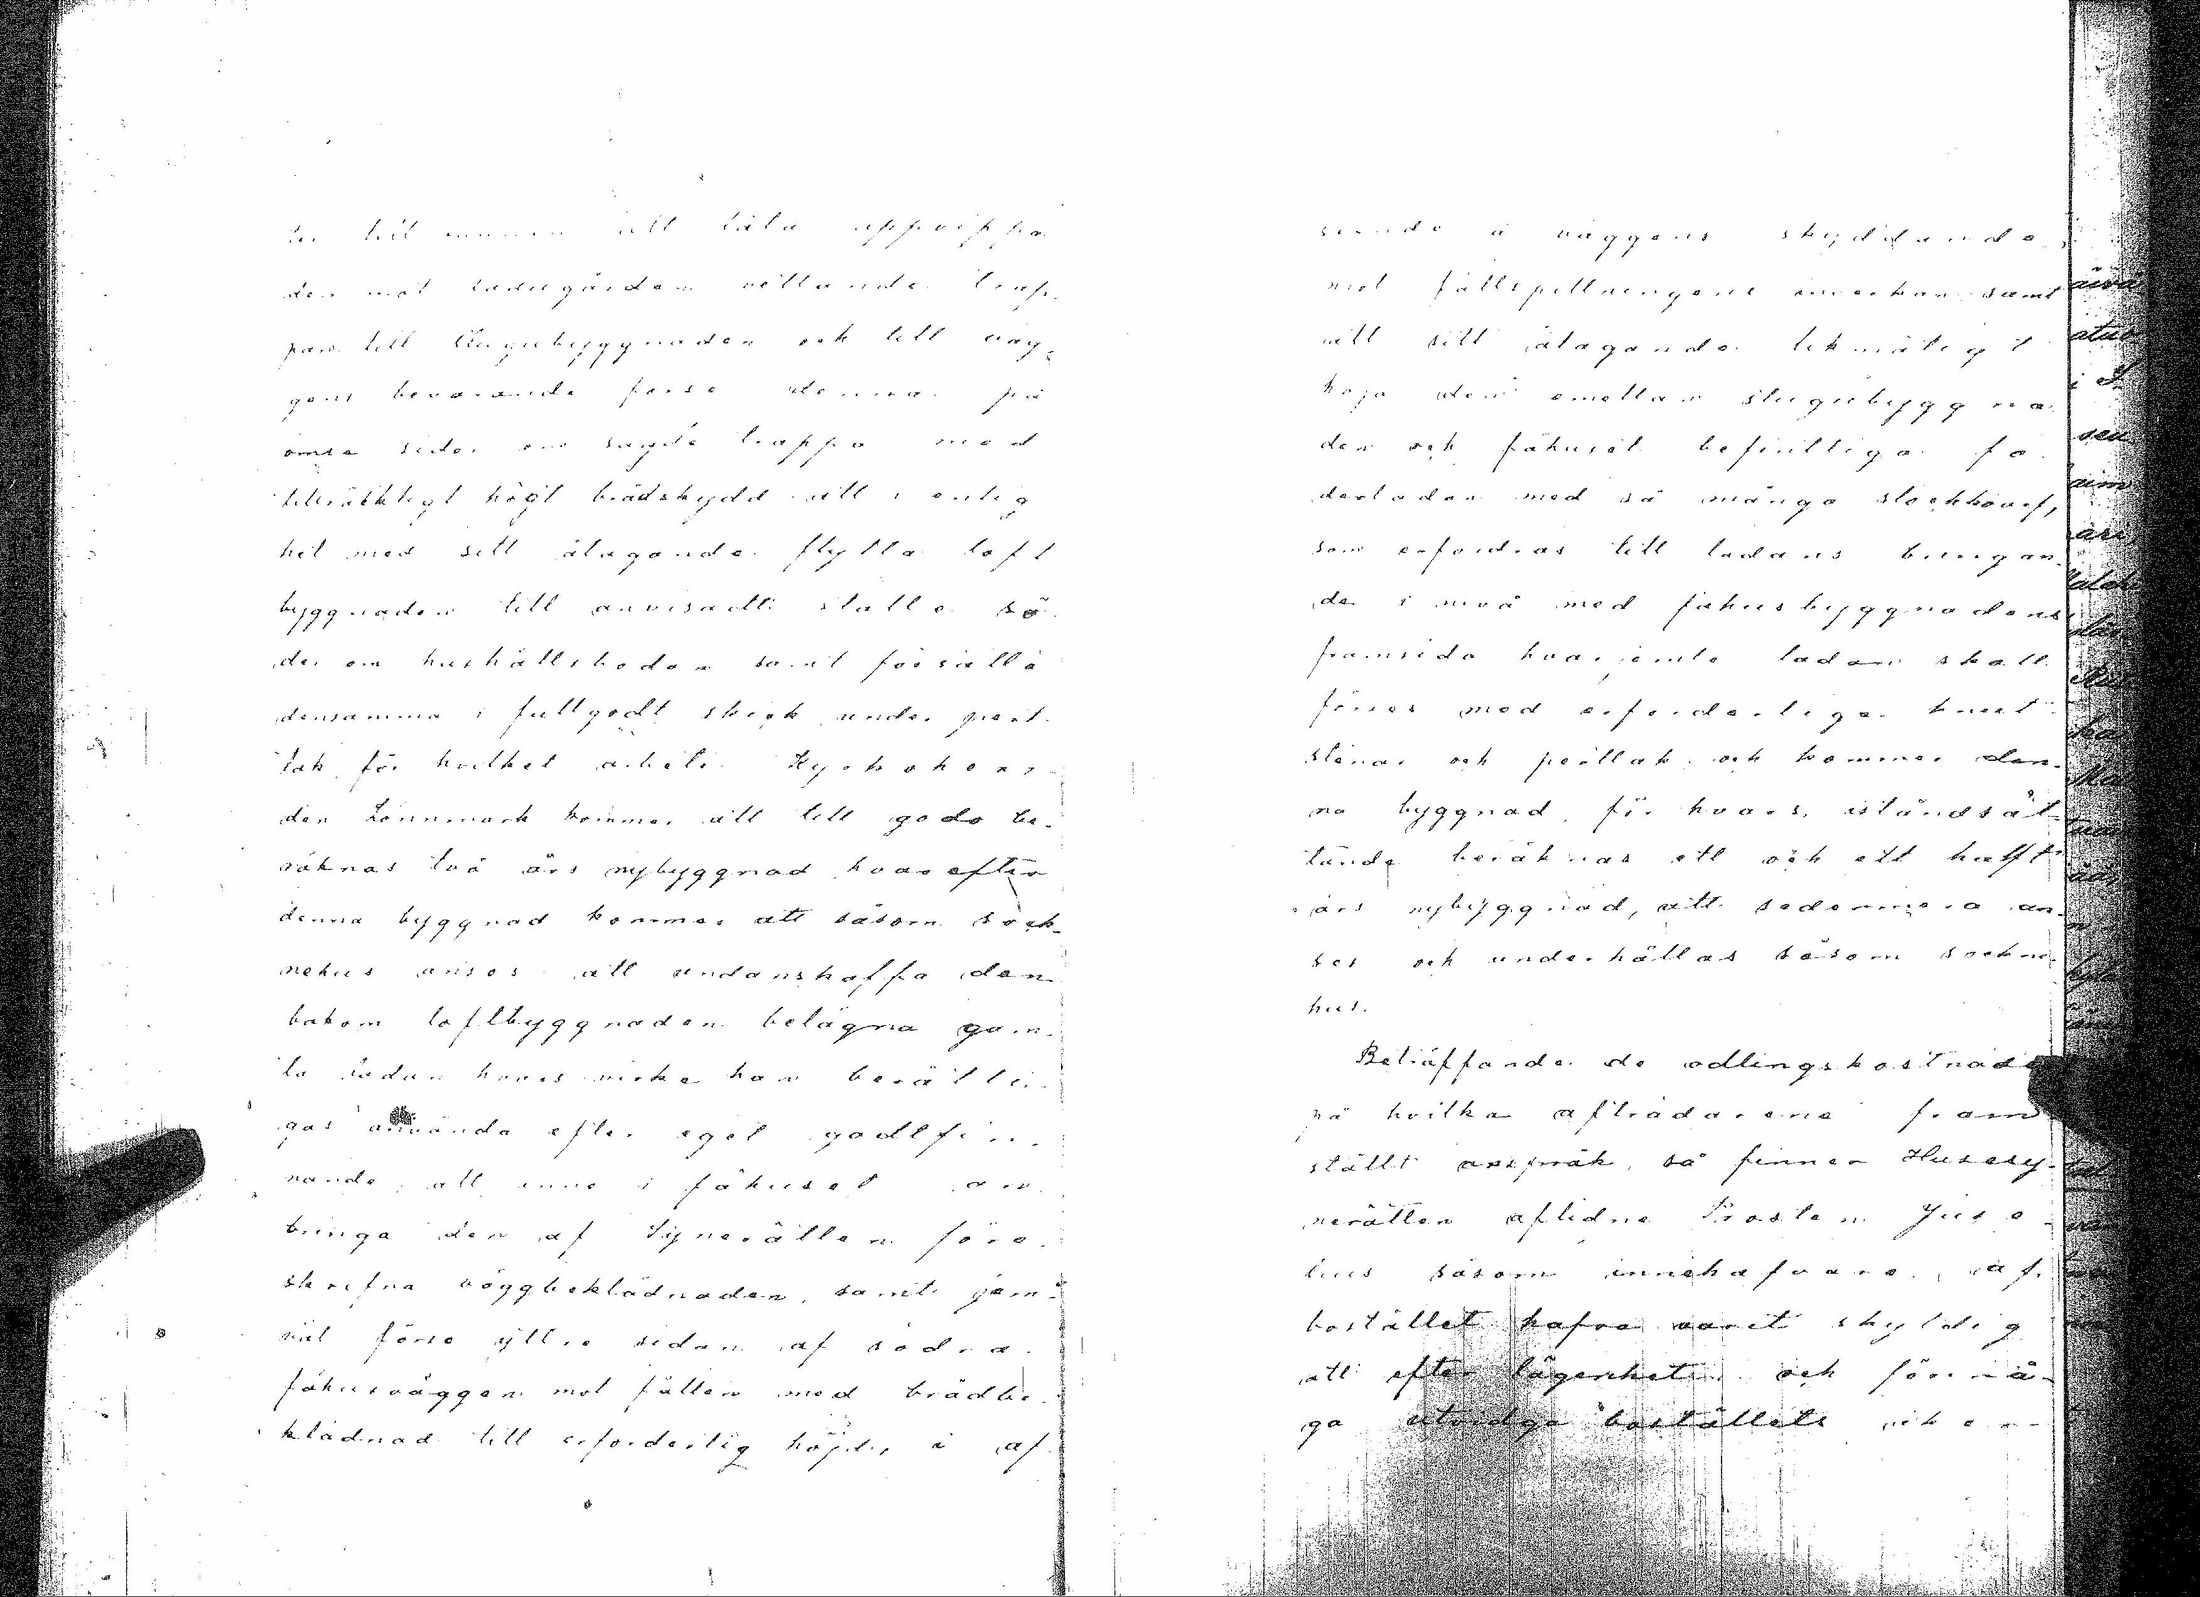 ter till minnen att låta uppvippa
den mot ladugården vettande trap-
pan till Stugubyggnaden och till väg-
gens bevarande förse denna på
ömse sidor om sagde trappa med
tillräckligt högt brädskydd att i enlig
het med sitt åtagande flytta loft
byggnaden till anvisadt ställe sö-
der om hushållsboden samt försätta
densamma i fullgodt skick under pert-
tak för hvilket arbete Kyrkoher-
den Lönnmark kommer att till godo be-
räknas två års nybyggnad hvarefter
denna byggnad kommer att såsom sock-
nehus anses att undanskaffa den
bakom loftbyggnaden belägna gam-
la ladan hvars virke han berätti-
gas använda efter eget godtfin-
nande, att inne i fähuset an-
bringa den af Synerätten före-
skrifna väggbeklädnaden, samt jem-
väl förse yttre sidan af södra
fähusväggen mot fållen med brädbe-
klädnad till erforderlig höjd, i af-
seende å väggens skyddande
mot fållspillningens inverkan samt
att sitt åtagande likmätigt
höja den emellan stugubyggna-
den och fähuset befintliga fo-
derladan med så många stockhvarf,
som erfordras till ladans bringan-
de i nivå med fähusbyggnadens
framsida hvarjemte ladan skall
förses med erforderliga knut-
stenar och perttak och kommer den-
na byggnad, för hvars iståndsät-
tande beräknas ett och ett halft
års nybyggnad, att sedermera an-
ses och underhållas såsom sockne-
hus.
Beträffande de odlingskostnader
på hvilka afträdarene fram-
ställt anspråk, så finner Husesy-
nerätten aflidne Prosten Juse-
lius såsom innehafvare af
bostället hafva varit skyldig
att efter lägenhet och förmå-
ga utvidga boställets åker-